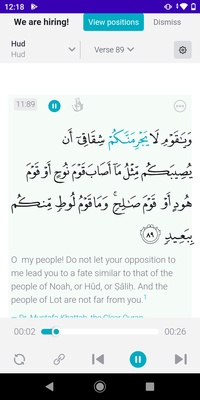 12:18
We are hiring! View positions Dismiss
Hud
Hud
Verse 89
11:89
وَيَـٰقَوْمِ لَا يَجْرِمَنَّكُمْ شِقَاقِىٓ أَن
يُصِيبَكُم مِّثْلُ مَآ أَصَابَ قَوْمَ نُوحٍ أَوْ قَوْمَ
هُودٍ أَوْ قَوْمَ صَـٰلِحٍ ۚ وَمَا قَوْمُ لُوطٍ مِّنكُم
بِبَعِيدٍ ٨٩
O my people! Do not let your opposition to
me lead you to a fate similar to that of the
people of Noah, or Hûd, or Ṣâliḥ. And the
people of Lot are not far from you.1
— Dr. Mustafa Khattab, the Clear Quran
00:02 00:26